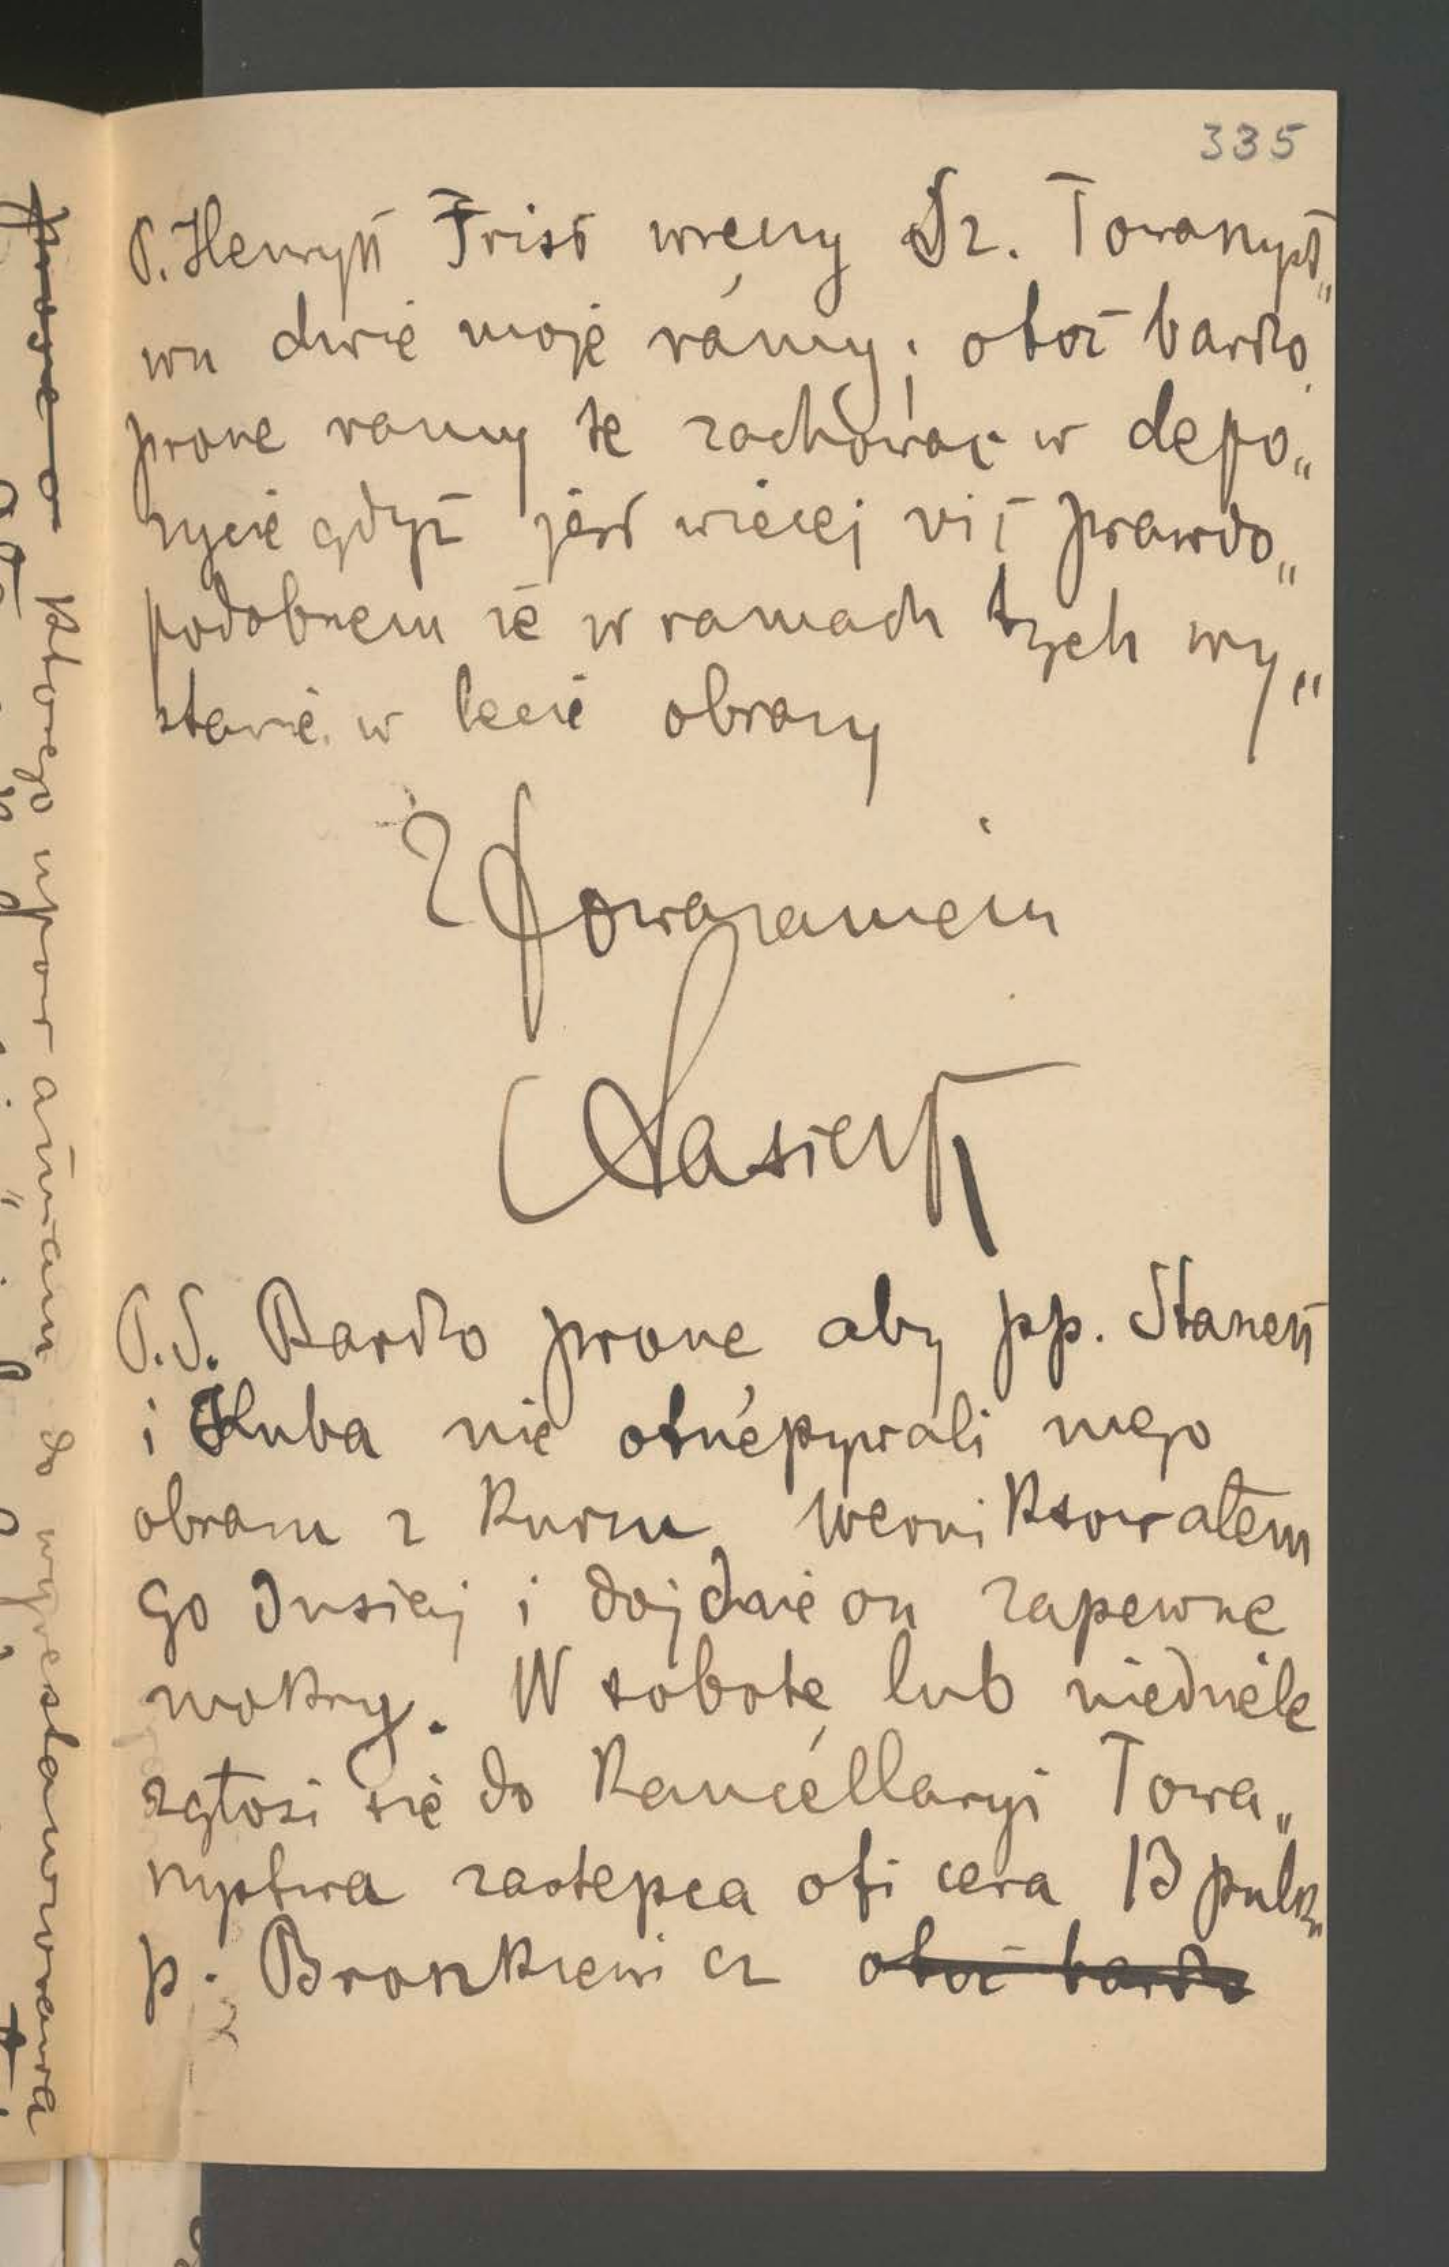 335
P. Henryk Frist wręczy Sz. Towarzyst„
wu dwie moje ramy; otóż bardzo
proszę ramy te zachować w depo„
zycie gdyż jest więcej niż prawdo„
podobnem że w ramach tych wy„
stawię w lecie obrazy
Z Poważaniem
Kasierski
P.S. Bardzo proszę aby pp. Stanek
i Kuba nie otrzepywali mego
obrazu z kurzu werniksowałem
go dusiej i dojdzie on zapewne
mokry. W sobotę lub niedzielę
zgłosi się do Kancellaryi Towa„
rzystwa zastępca oficera 13 pułk„
p. Bronkiewicz otóż bardzo
proszę o
którego upoważniam do wyprestawowania